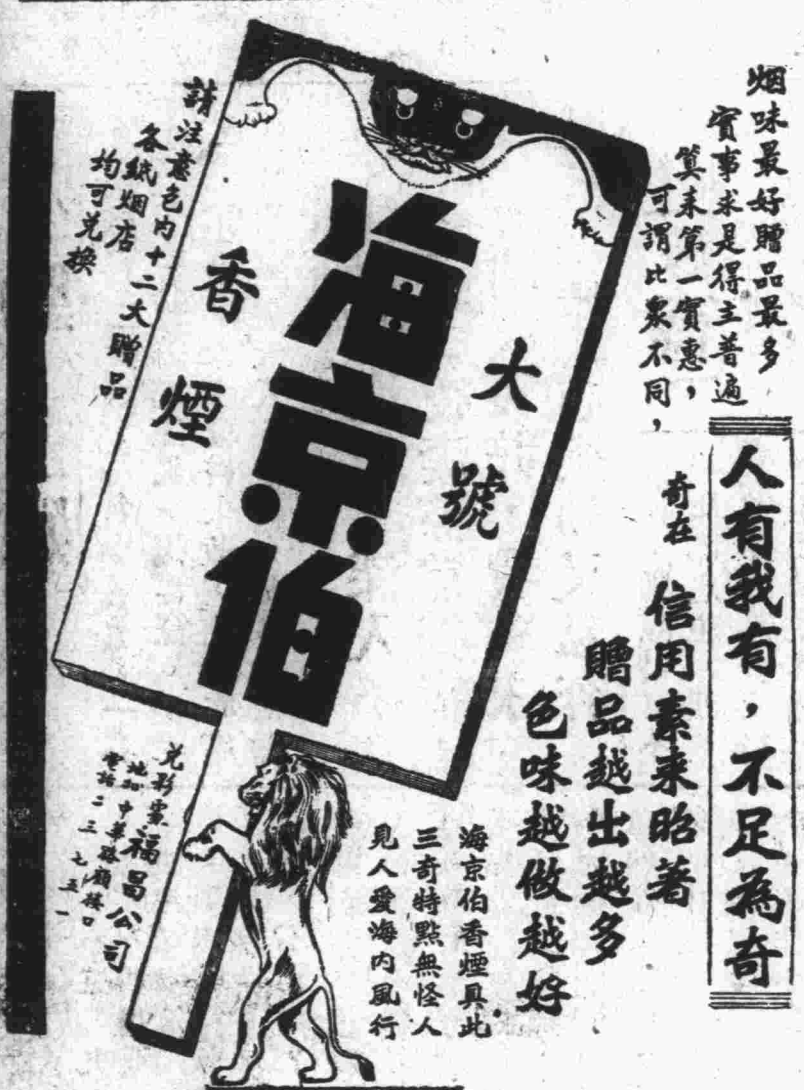 烟味最好贈品最多
實事求是得主普遍
算来第一實惠，
可謂比衆不同，
人有我有，不足為奇
奇在
信用素来昭著
贈品越出越多
色味越做越好
海京伯香煙具此
三奇特點無怪人
見人愛海内風行
大號
海京伯
香煙
請注意包内十二大贈品
各紙烟店
均可兑換
兑彩處福昌公司
地址中華路
電話二三七五一